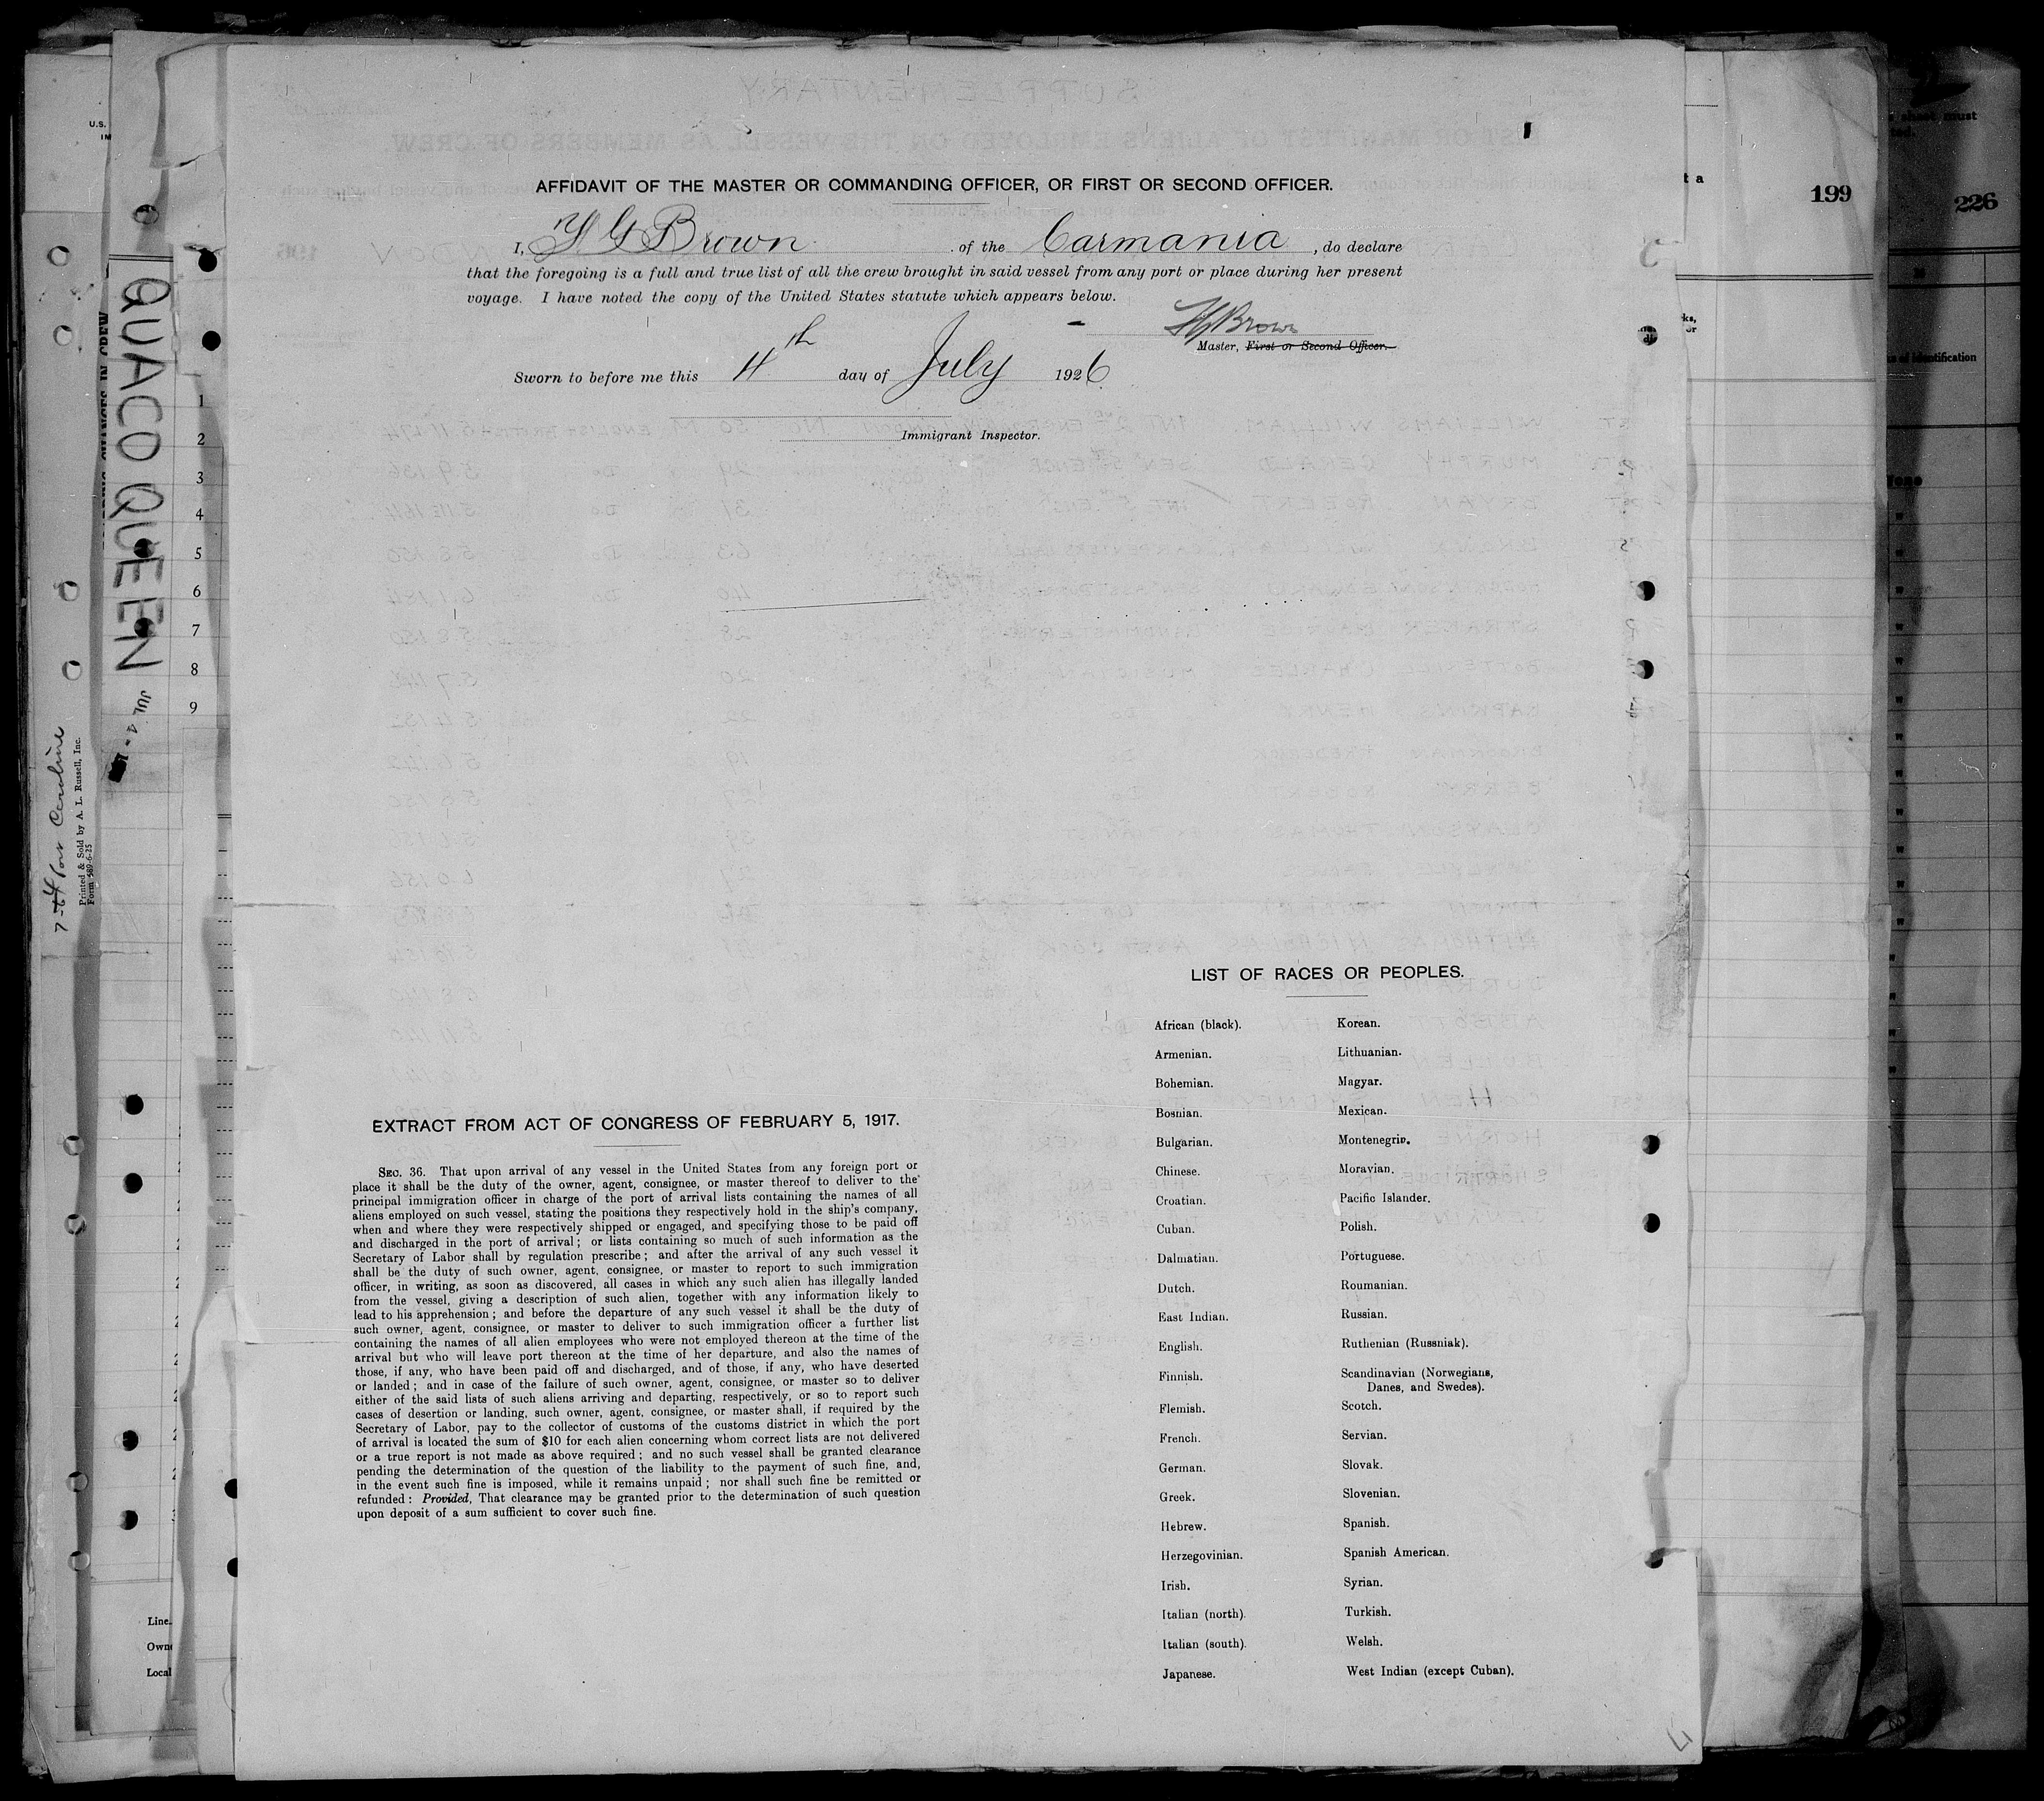 AFFIDAVIT OF THE MASTER OR COMMANDING OFFICER, OR FIRST OR SECOND OFFICER.
I, H G Brown of the Carmania, do declare
that the foregoing is a full and true list of all the crew brought in said vessel from any port or place during her present
voyage. I have noted the copy of the United States statute which appears below.
HGBrown
Master, First or Second Officer.
Sworn to before me this 4th day of July 1926
Immigrant Inspector.
EXTRACT FROM ACT OF CONGRESS OF FEBRUARY 5, 1917.
SEC. 36. That upon arrival of any vessel in the United States from any foreign port or
place it shall be the duty of the owner, agent, consignee, or master thereof to deliver to the
principal immigration officer in charge of the port of arrival lists containing the names of all
aliens employed on such vessel, stating the positions they respectively hold in the ship's company,
when and where they were respectively shipped or engaged, and specifying those to be paid off
and discharged in the port of arrival; or lists containing so much of such information as the
Secretary of Labor shall by regulation prescribe; and after the arrival of any such vessel it
shall be the duty of such owner, agent, consignee, or master to report to such immigration
officer, in writing, as soon as discovered, all cases in which any such alien has illegally landed
from the vessel, giving a description of such alien, together with any information likely to
lead to his apprehension; and before the departure of any such vessel it shall be the duty of
such owner, agent, consignee, or master to deliver to such immigration officer a further list
containing the names of all alien employees who were not employed thereon at the time of the
arrival but who will leave port thereon at the time of her departure, and also the names of
those, if any, who have been paid off and discharged, and of those, if any, who have deserted
or landed; and in case of the failure of such owner, agent, consignee, or master so to deliver
either of the said lists of such aliens arriving and departing, respectively, or so to report such
cases of desertion or landing, such owner, agent, consignee, or master shall, if required by the
Secretary of Labor, pay to the collector of customs of the customs district in which the port
of arrival is located the sum of $10 for each alien concerning whom correct lists are not delivered
or a true report is not made as above required; and no such vessel shall be granted clearance
pending the determination of the question of the liability to the payment of such fine, and,
in the event such fine is imposed, while it remains unpaid; nor shall such fine be remitted or
refunded: Provided, That clearance may be granted prior to the determination of such question
upon deposit of a sum sufficient to cover such fine.
LIST OF RACES OR PEOPLES.
African (black). Korean.
Armenian. Lithuanian.
Bohemian. Magyar.
Bosnian. Mexican.
Bulgarian. Montenegrin.
Chinese. Moravian.
Croatian. Pacific Islander.
Cuban. Polish.
Dalmatian. Portuguese.
Dutch. Roumanian.
East Indian. Russian.
English. Ruthenian (Russniak).
Finnish. Scandinavian (Norwegians,
Danes, and Swedes).
Flemish. Scotch.
French. Servian.
German. Slovak.
Greek. Slovenian.
Hebrew. Spanish.
Herzegovinian. Spanish American.
Irish. Syrian.
Italian (north). Turkish.
Italian (south). Welsh.
Japanese. West Indian (except Cuban).
QUACO QUEEN
Printed & Sold by A. L. Russell, Inc.
Form 589-6-25
U.S.
1
2
3
4
5
6
7
8
9
Line
199
226